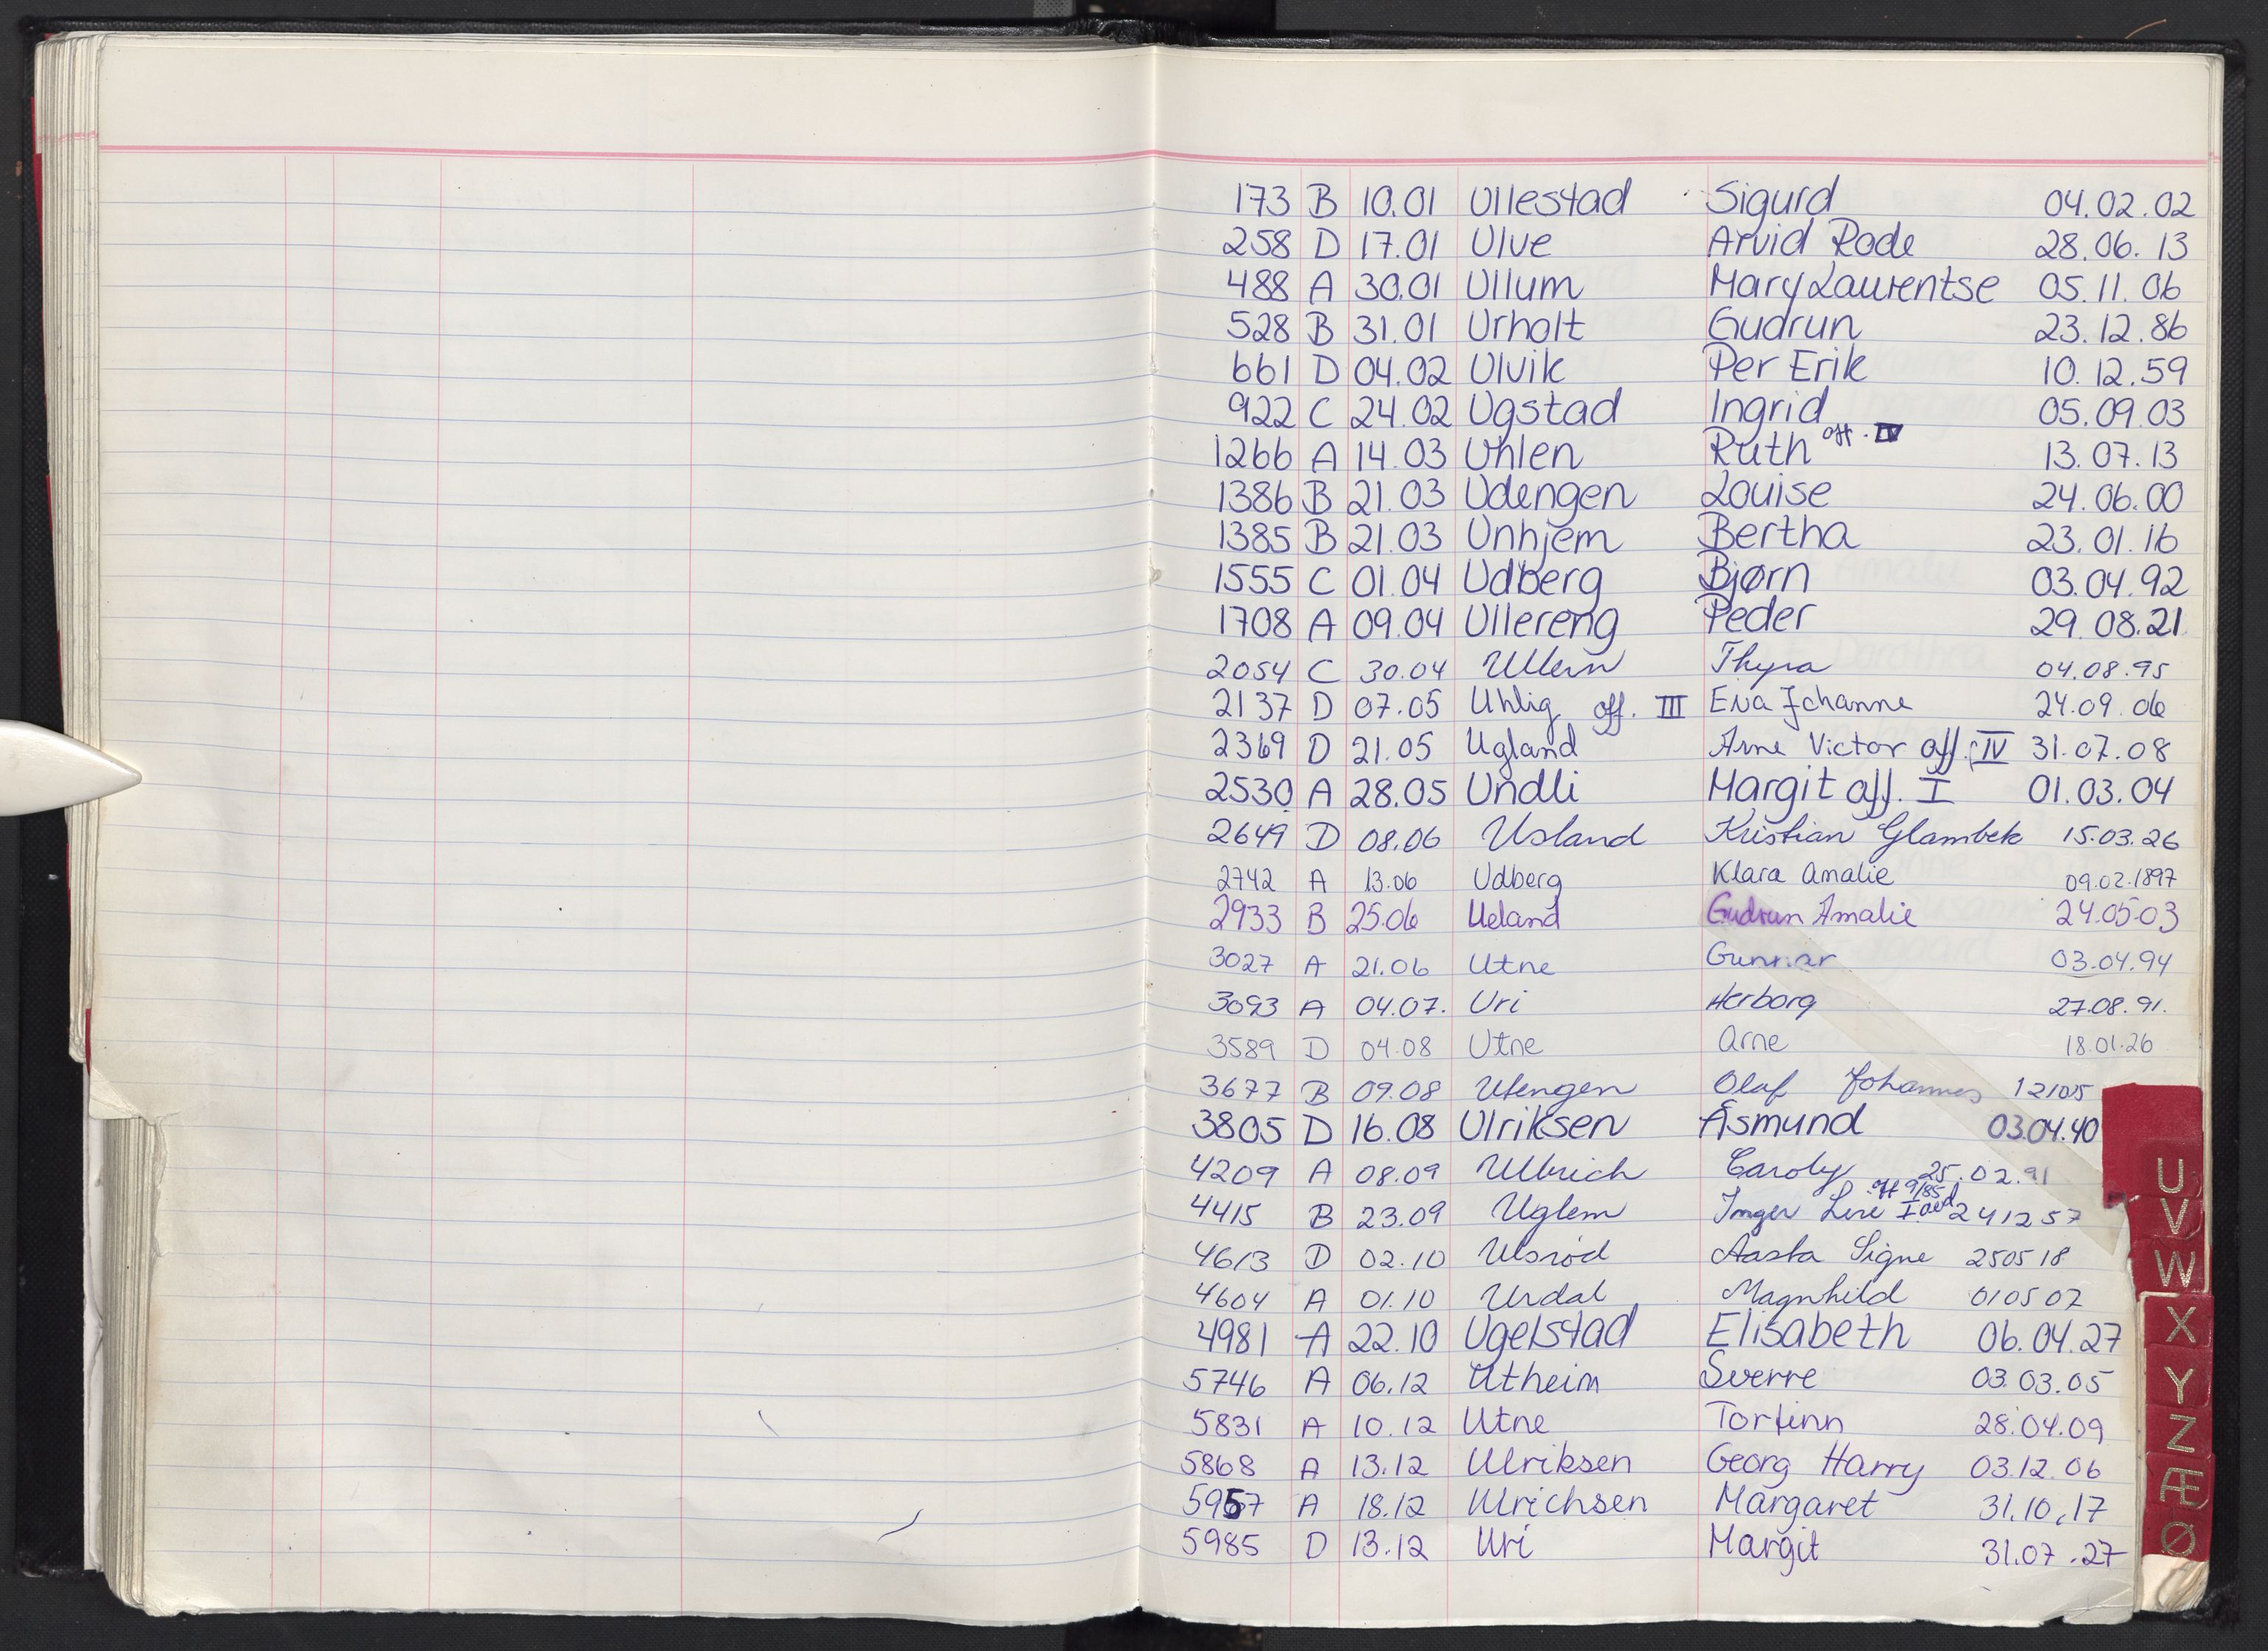 173 B 10.01 Ullestad Sigurd 04.02.02
258 D 17.01 Ulve Arvid Rode 28.06.13
488 A 30.01 Ullum Mary Laurentse 05.11.06
528 B 31.01 Urholt Gudrun 23.12.86
661 D 04.02 Ulvik Per Erik 10.12.59
922 C 24.02 Ugstad Ingrid 05.09.03
1266 A 14.03 Uhlen Ruth off. IV 13.07.13
1386 B 21.03 Udengen Louise 24.06.00
1385 B 21.03 Unhjem Bertha 23.01.16
1555 C 01.04 Udberg Bjørn 03.04.92
1708 A 09.04 Ullereng Peder 29.08.21
2054 C 30.04 Ullern Thyra 04.08.95
2137 D 07.05 Uhlig off. III Eva Johanne 24.09.06
2369 D 21.05 Ugland Arne Victor off. IV 31.07.08
2530 A 28.05 Undli Margit off. I 01.03.04
2649 D 08.06 Usland Kristian Glambek 15.03.26
2742 A 13.06 Udberg Klara Amalie 09.02.1897
2933 B 25.06 Ueland Gudrun Amalie 24.05.03
3027 A 21.06 Utne Gunnar 03.04.94
3093 A 04.07. Uri Herborg 27.08.91.
3589 D 04.08 Utne Arne 18.01.26
3677 B 09.08 Utengen Olaf Johannes 121015
3805 D 16.08 Ulriksen Åsmund 03.04.40
4209 A 08.09 Ullrich Caroly 25.02.91
4415 B 23.09 Uglem Inger Lise off 9/85 I 241257
4613 D 02.10 Ulsrød Aasta Signe 250518
4604 A 01.10 Urdal Magnhild 010507
4981 A 22.10 Ugelstad Elisabeth 06.04.27
5746 A 06.12 Utheim Sverre 03.03.05
5831 A 10.12 Utne Torfinn 28.04.09
5868 A 13.12 Ulriksen Georg Harry 03.12.06
5957 A 18.12 Ulrichsen Margaret 31.10.17
5985 D 13.12 Uri Margit 31.07.27
U
V
W
X
Y
Z
Æ
Ø